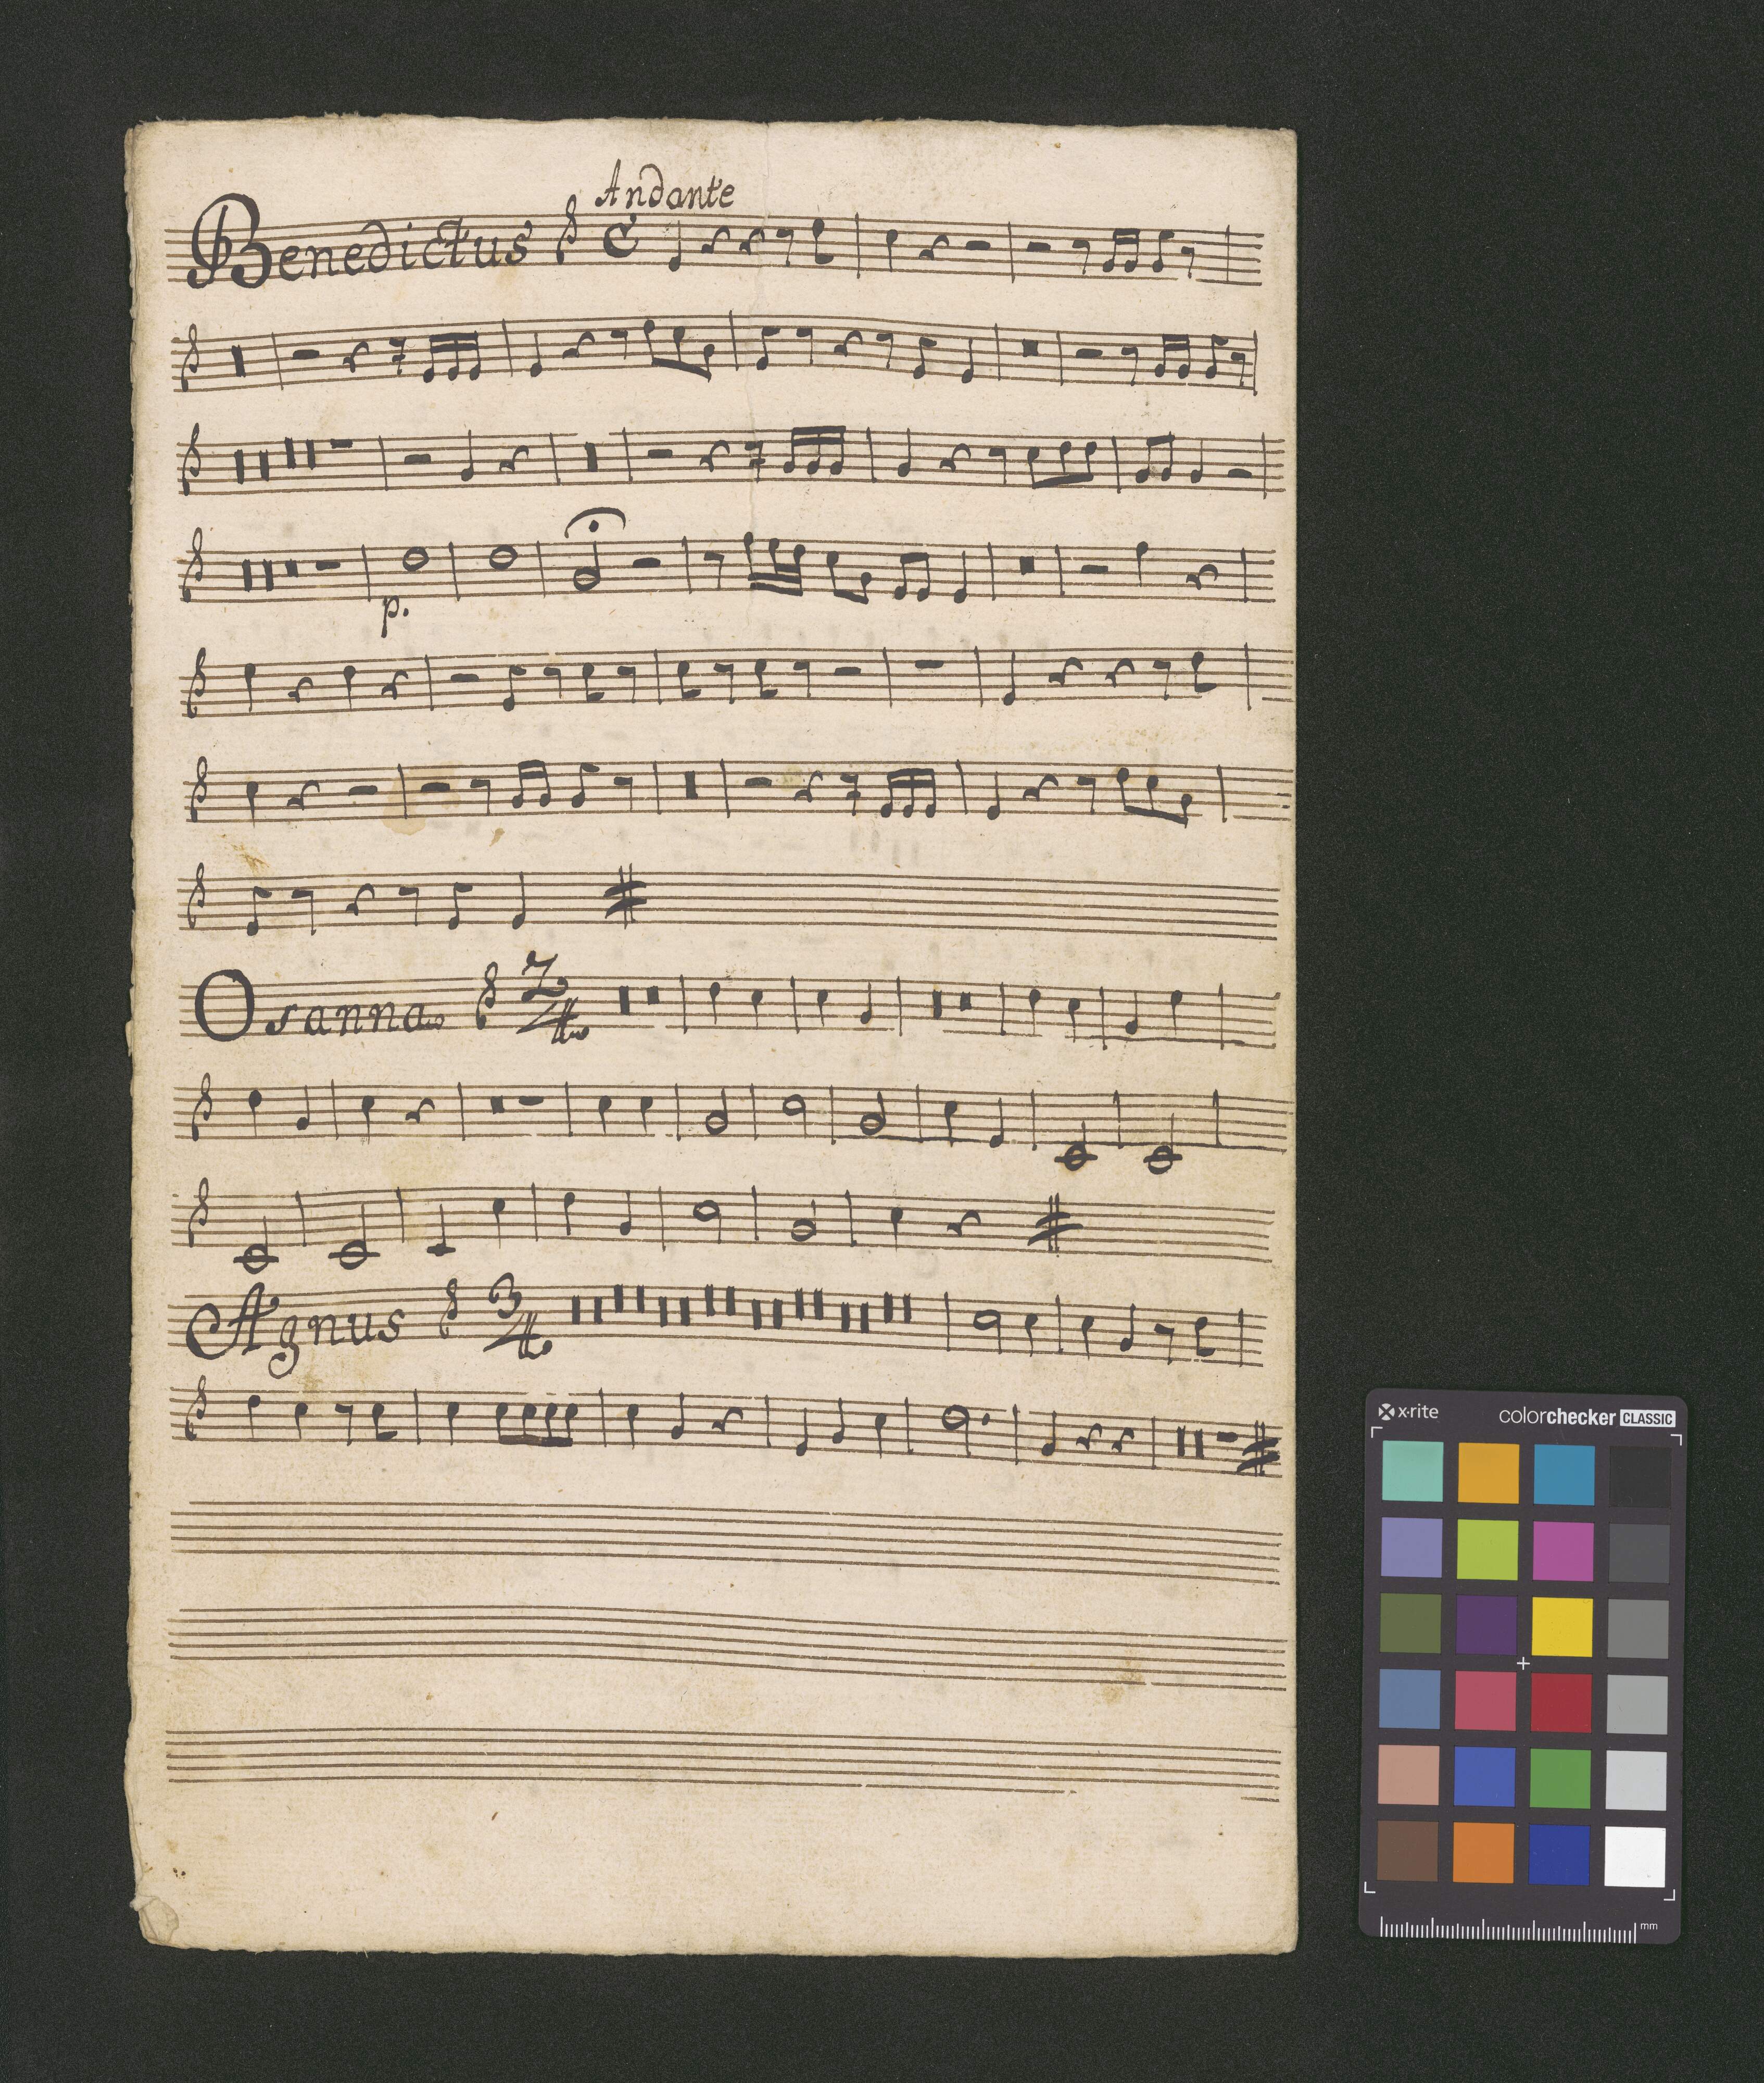 Andante
Benedictus C
p.
Osanna 2/4
Agnus 3/4
x-rite colorchecker CLASSIC
mm